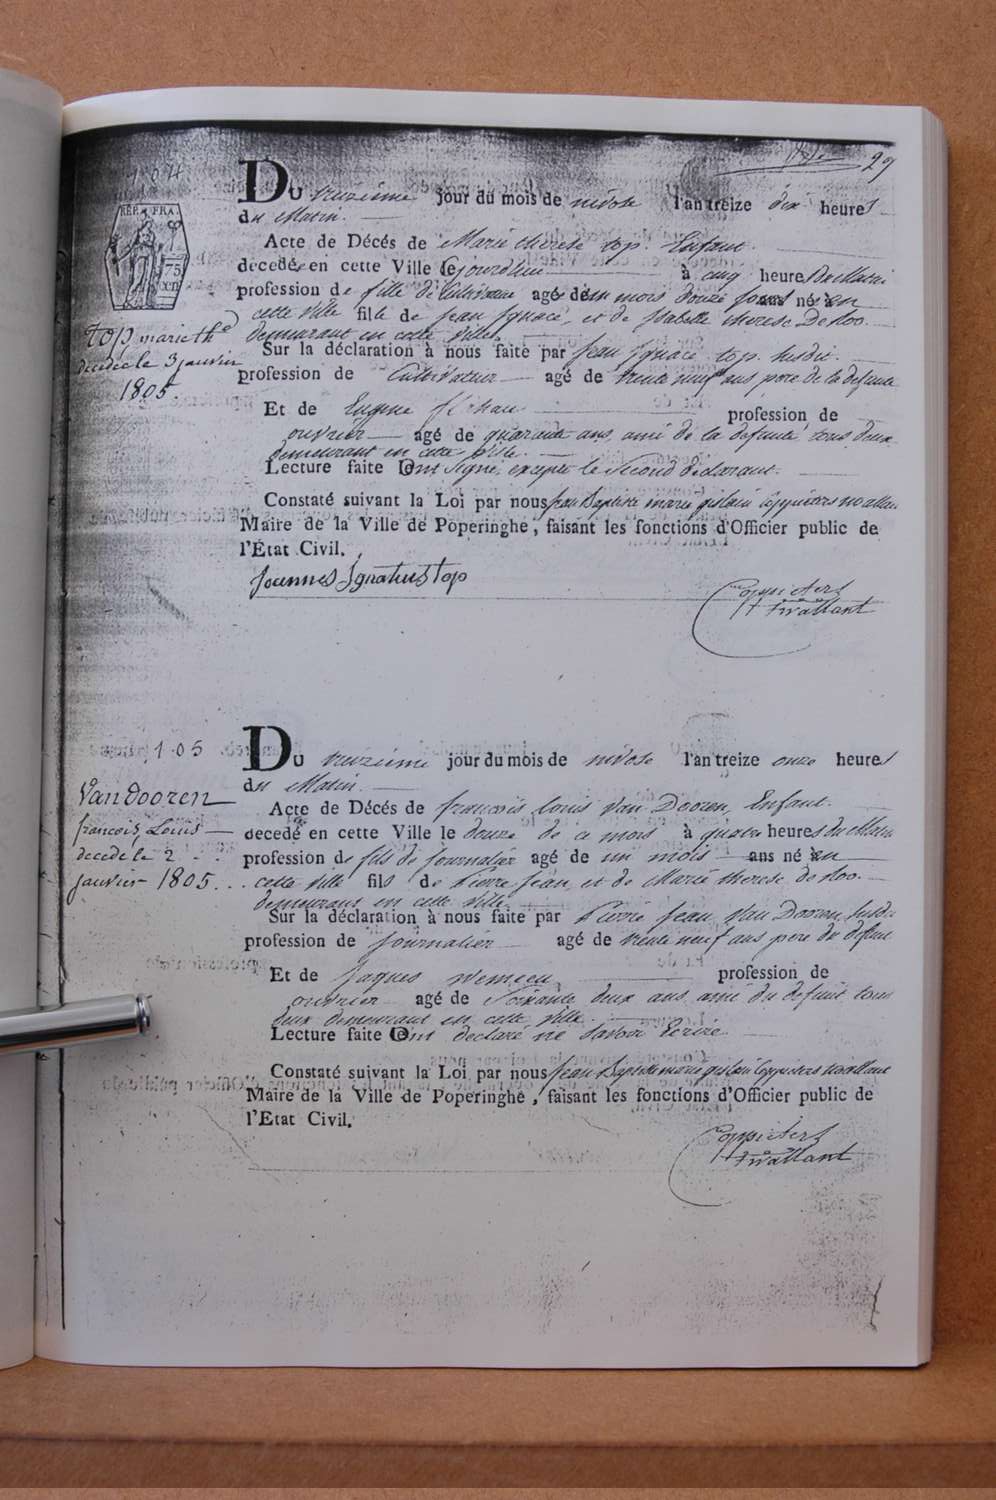 29
104
REP. FRA.
75
Du treizième jour du mois de nivôse l'an treize dix heures
du Matin.
Acte de Décés de Marie therese top. Enfant.
decedée en cette Ville le jourdhui à cinq heures du Matin
profession de fille de Cultivateur agé de un mois douze jours né en
cette ville fille de Jean Ignace, et de Isabelle therese De Roo.
demeurant en cette Ville.
top marie the
decedé le 3 janvier
1805.
Sur la déclaration à nous faite par Jean Ignace top. susdit.
profession de Cultivateur agé de trente neuf ans pere de la defunte
Et de Eugene profession de
ouvrier agé de quarante ans, ami de la defunte, tous deux
demeurant en cette ville.
Lecture faite ont signé, excepté le second déclarant.
Constaté suivant la Loi par nous Jean Baptiste marie gislain Coppieters
Maire de la Ville de Poperinghe, faisant les fonctions d'Officier public de
l'État Civil.
Joannes Ignatius Top
Coppieters
t'Wallant
105
Du treizième jour du mois de nivôse l'an treize onze heures
du Matin.
Vandooren
francois Louis
decedé le 2
janvier 1805.
Acte de Décés de francois Louis Van Dooren, Enfant.
decedé en cette Ville le douze de ce mois à quatre heures du Matin
profession de fils de journalier agé de un mois ans né en
cette ville fils de Pierre Jean, et de Marie therese de Roo.
demeurant en cette ville.
Sur la déclaration à nous faite par Pierre Jean Van Dooren, susdit
profession de Journalier agé de trente neuf ans pere du defunt
Et de Jaques profession de
ouvrier agé de Soixante deux ans, ami du defunt, tous
deux demeurant en cette ville.
Lecture faite ont declaré ne savoir Ecrire
Constaté suivant la Loi par nous Jean Baptiste marie gislain Coppieters
Maire de la Ville de Poperinghe, faisant les fonctions d'Officier public de
l'Etat Civil.
Coppieters
t'Wallant